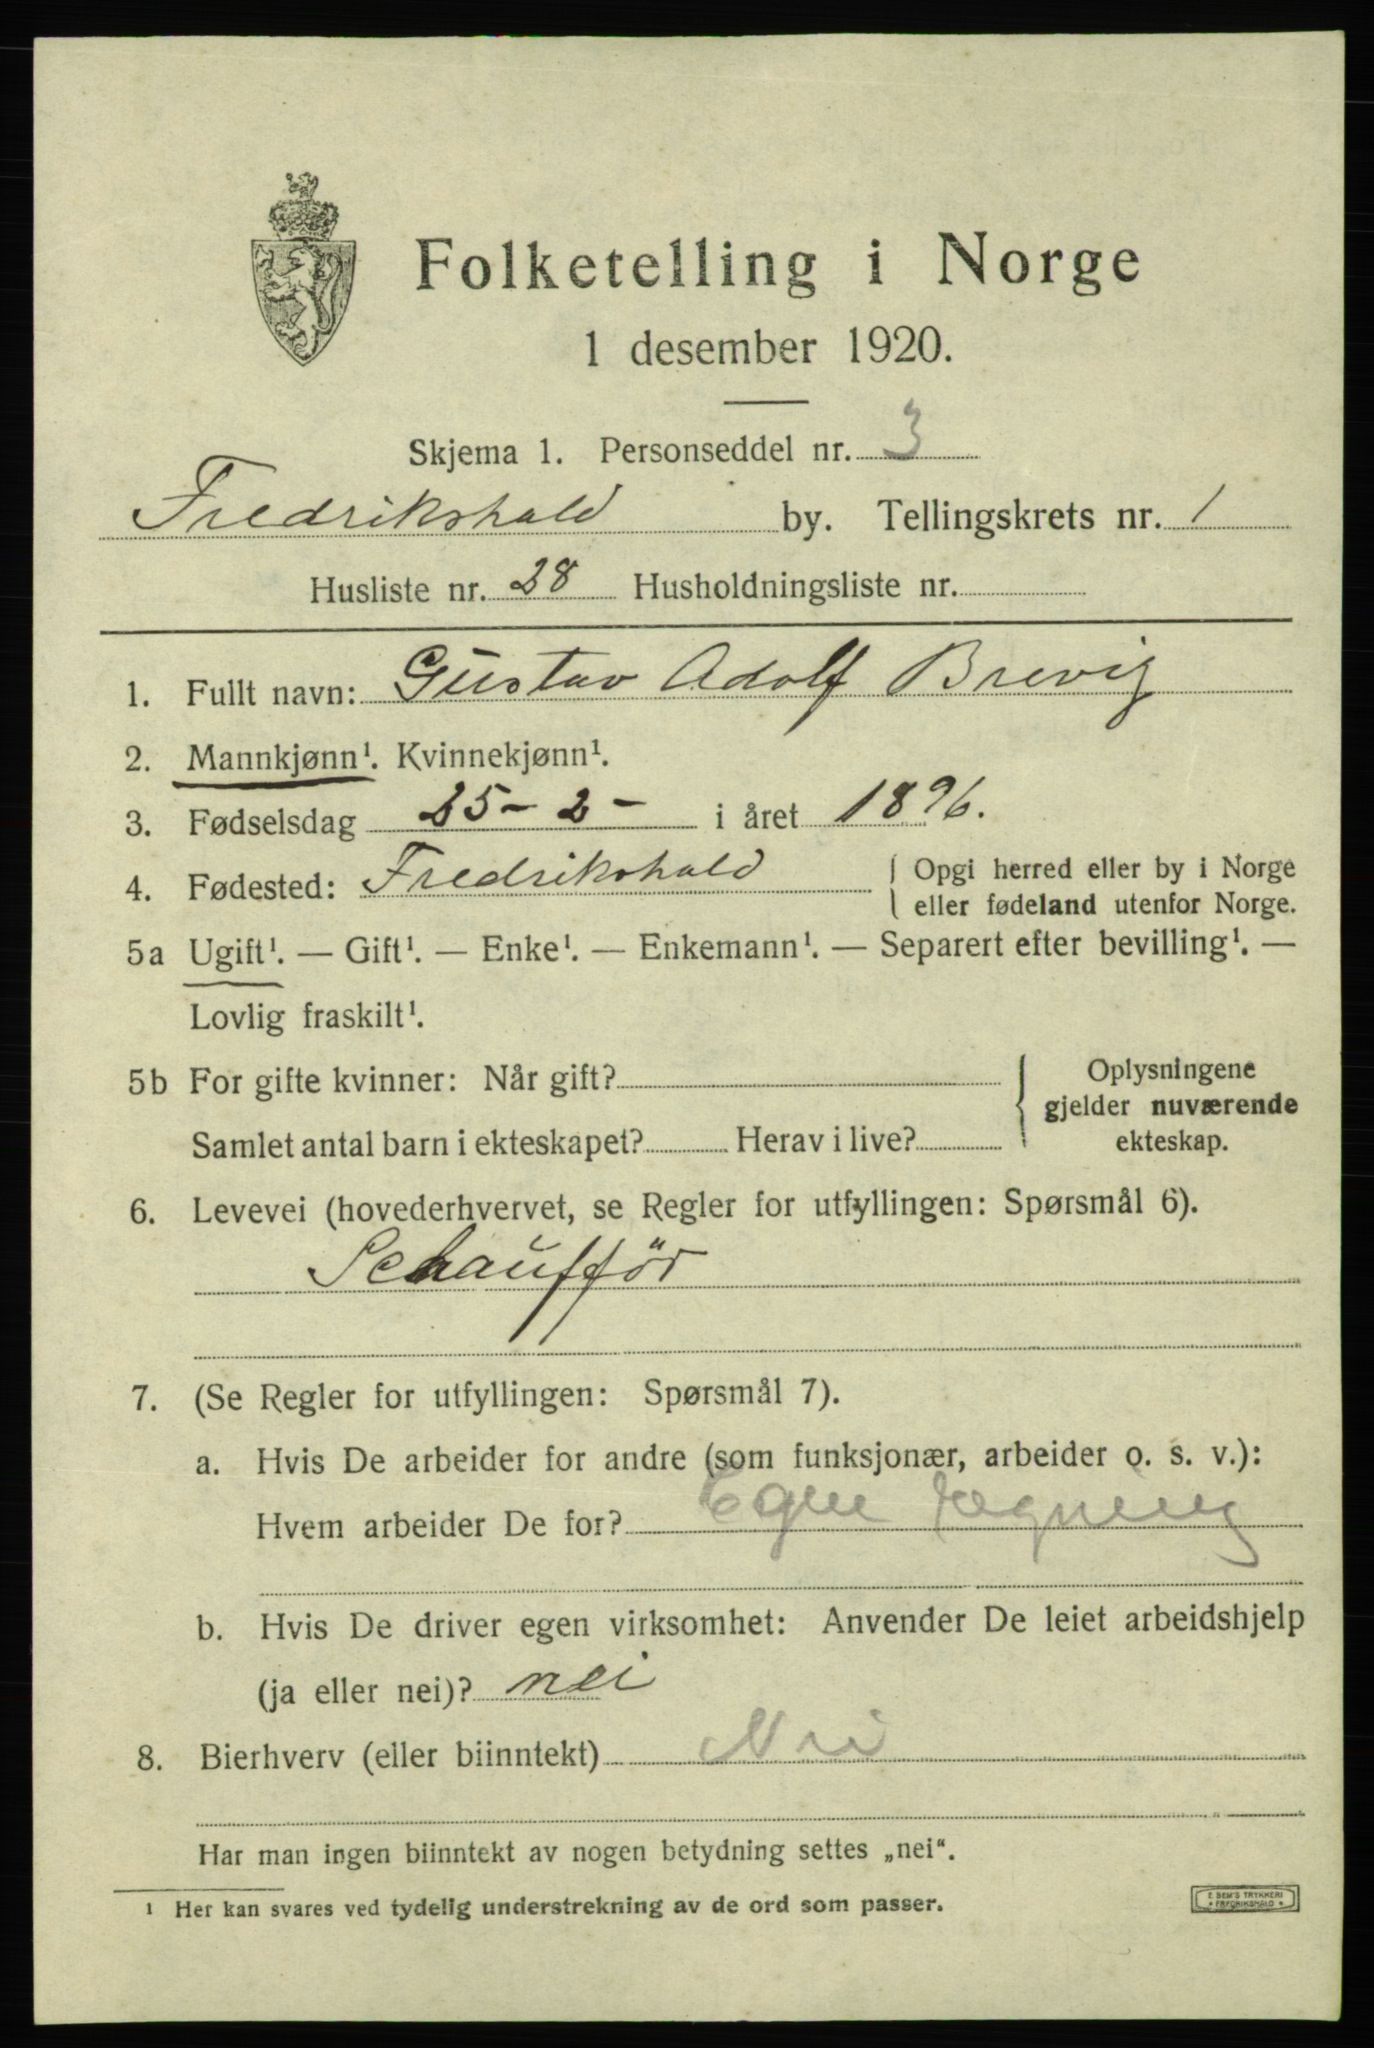 Folketelling i Norge
1 desember 1920.
Skjema 1. Personseddel nr. 3
Fredrikshald by. Tellingskrets nr. 1
Husliste nr. 28 Husholdningsliste nr.
1. Fullt navn: Gustav Adolf Brevig
2. Mannkjønn¹. Kvinnekjønn¹.
3. Fødselsdag 25 - 2 - i året 1896.
4. Fødested: Fredrikshald { Opgi herred eller by i Norge
eller fødeland utenfor Norge.
5a Ugift¹. — Gift¹. — Enke¹. — Enkemann¹. — Separert efter bevilling¹. —
Lovlig fraskilt¹.
5b For gifte kvinner: Når gift?
Samlet antal barn i ekteskapet? Herav i live?
Oplysningene
gjelder nuværende
ekteskap.
6. Levevei (hovederhvervet, se Regler for utfyllingen: Spørsmål 6).
Schaufför
7. (Se Regler for utfyllingen: Spørsmål 7).
a. Hvis De arbeider for andre (som funksjonær, arbeider o. s. v.):
Hvem arbeider De for? Egen regning
b. Hvis De driver egen virksomhet: Anvender De leiet arbeidshjelp
(ja eller nei)? nei
8. Bierhverv (eller biinntekt) Nei
Har man ingen biinntekt av nogen betydning settes „nei“.
¹ Her kan svares ved tydelig understrekning av de ord som passer.
E. SEM'S TRYKKERI
FREDRIKSHALD